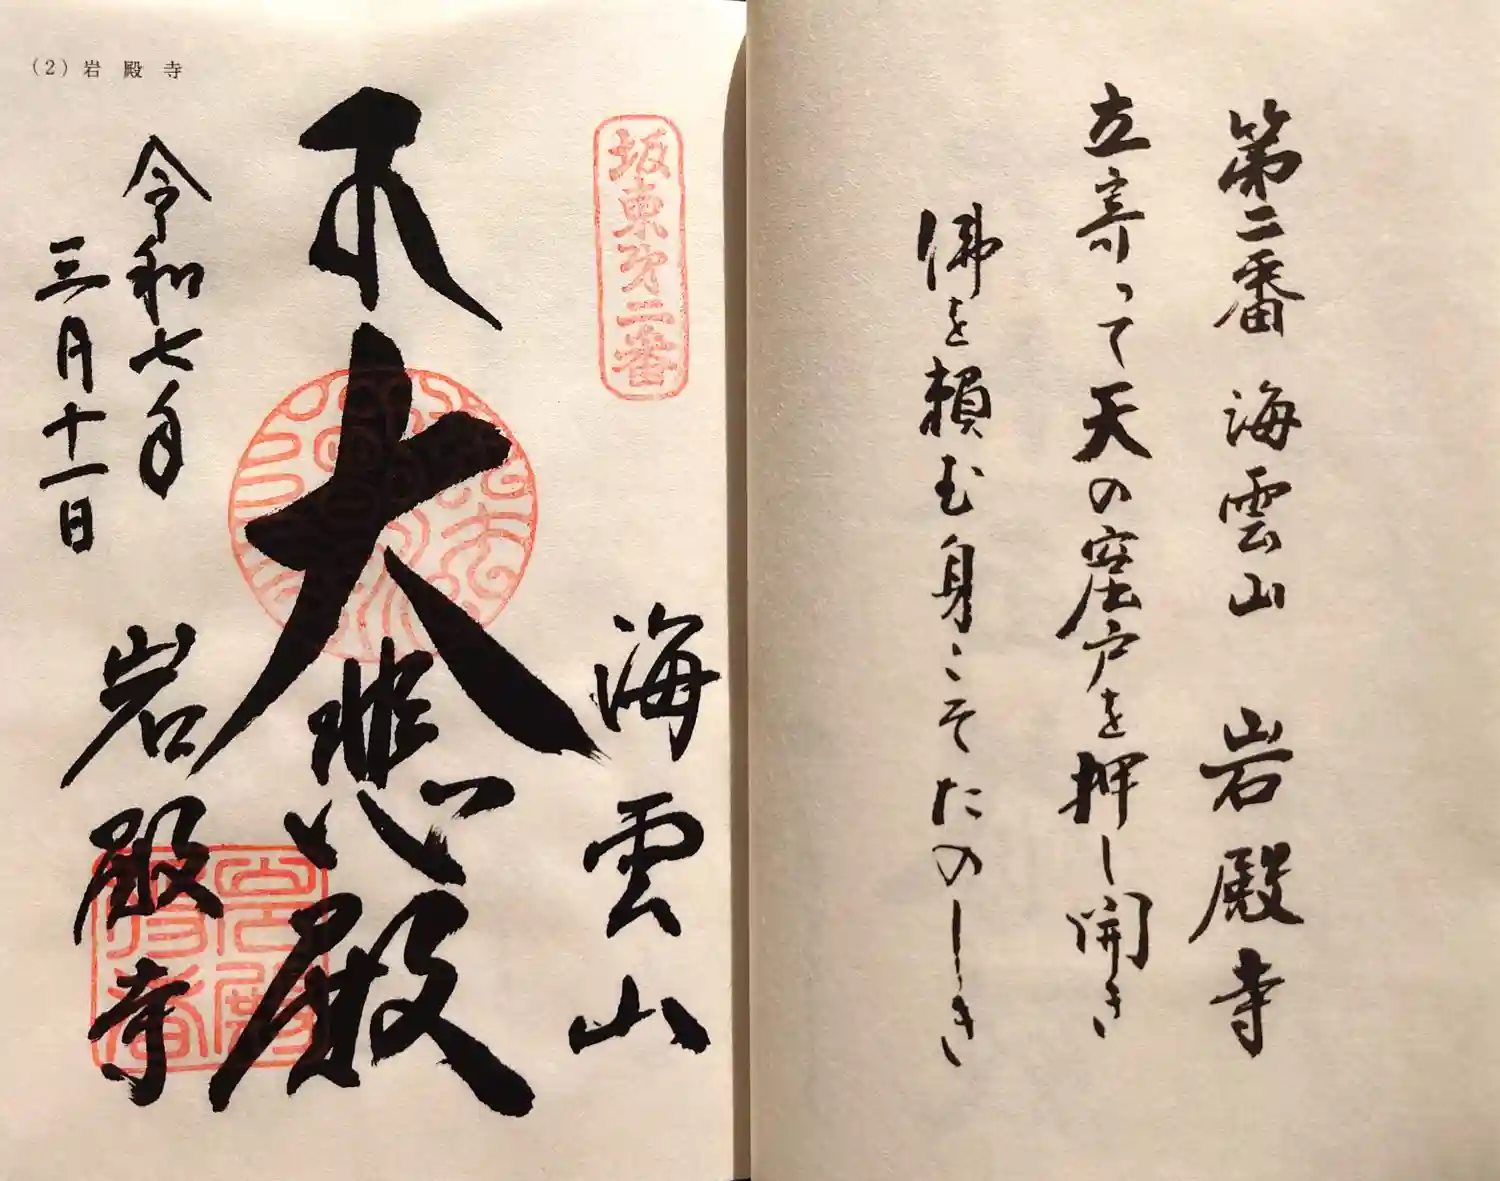 第二番 海雲山 岩殿寺
立寄って天の窟戸を押し開き
佛を頼む身こそたのしき
坂東㐧二番
海雲山
大悲殿
岩殿寺
令和七年
三月十一日
(2) 岩殿寺